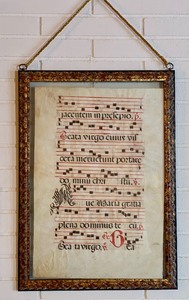 jacentem in presepio.
Beata virgo cuius vis
cera meruerunt portare
dominu chri stu.
Aue Maria gratia
plena dominus te cu
Bea ta virgo. Bea